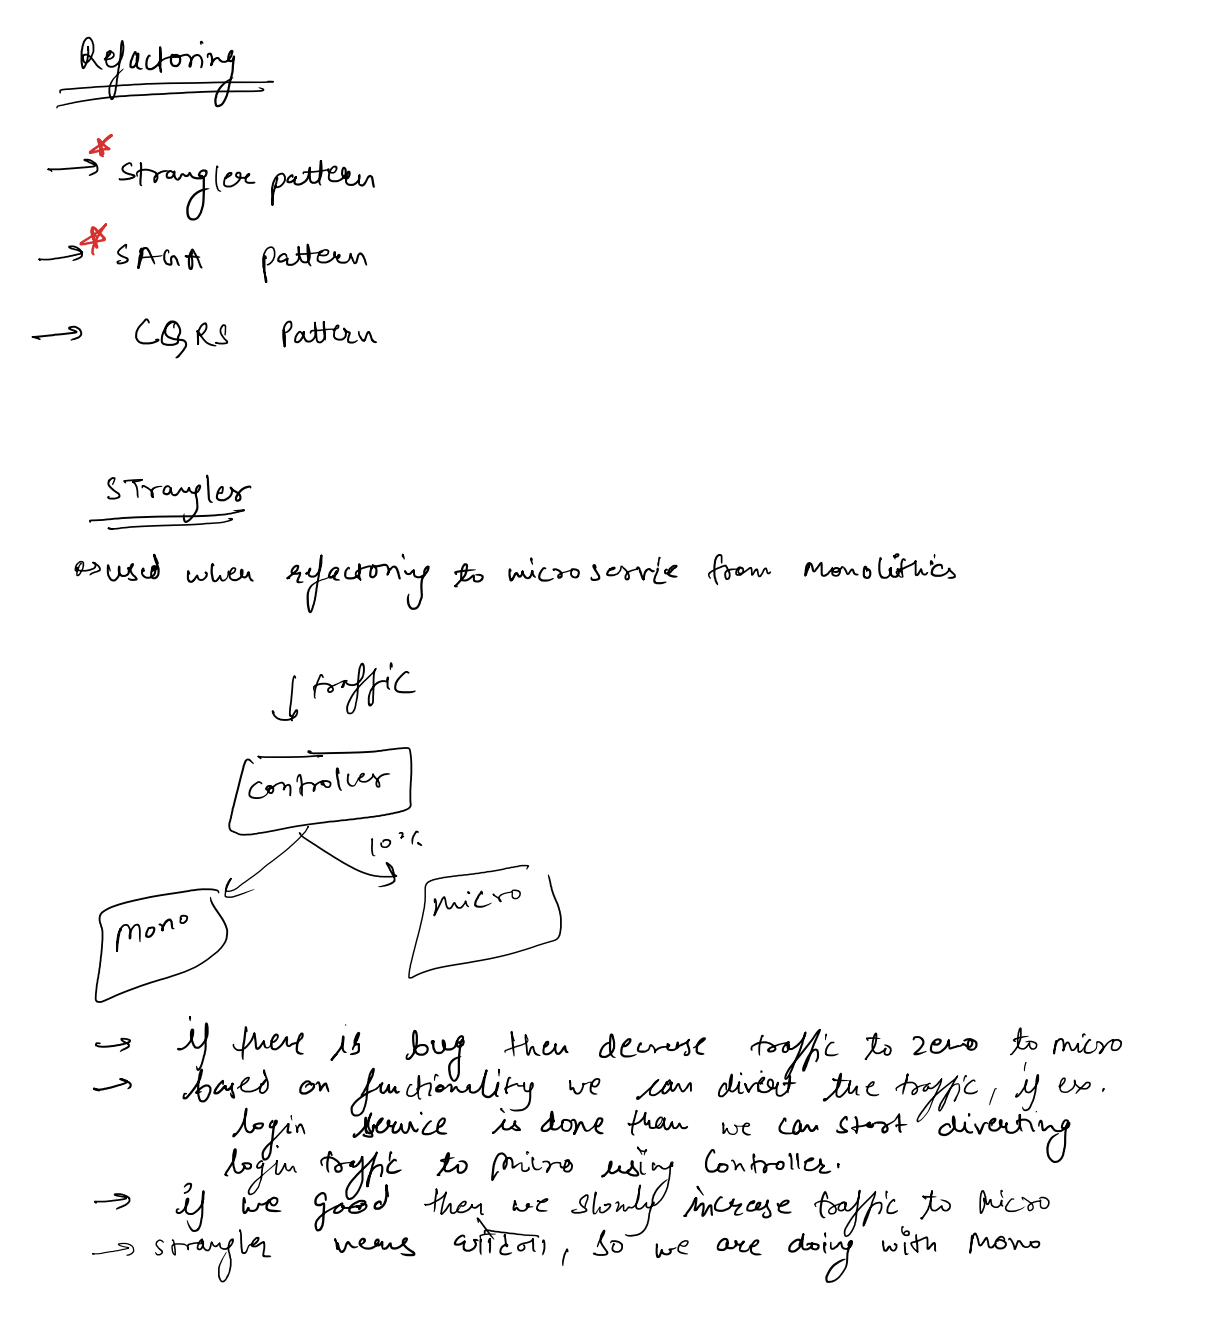 Refactoring
→ * Strangler pattern
→ * SAGA pattern
→ CQRS Pattern
STrangler
↔ used when refactoring to microservie from Monolithics
↓ traffic
controller
10%
Mono
Micro
→ if there is bug then decrease traffic to zero to micro
→ based on functionality we can divert the traffic, if ex.
login service is done than we can start diverting
login traffic to micro using Controller.
→ if we good then we slowly increase traffic to Micro
→ strangler means, so we are doing with Mono